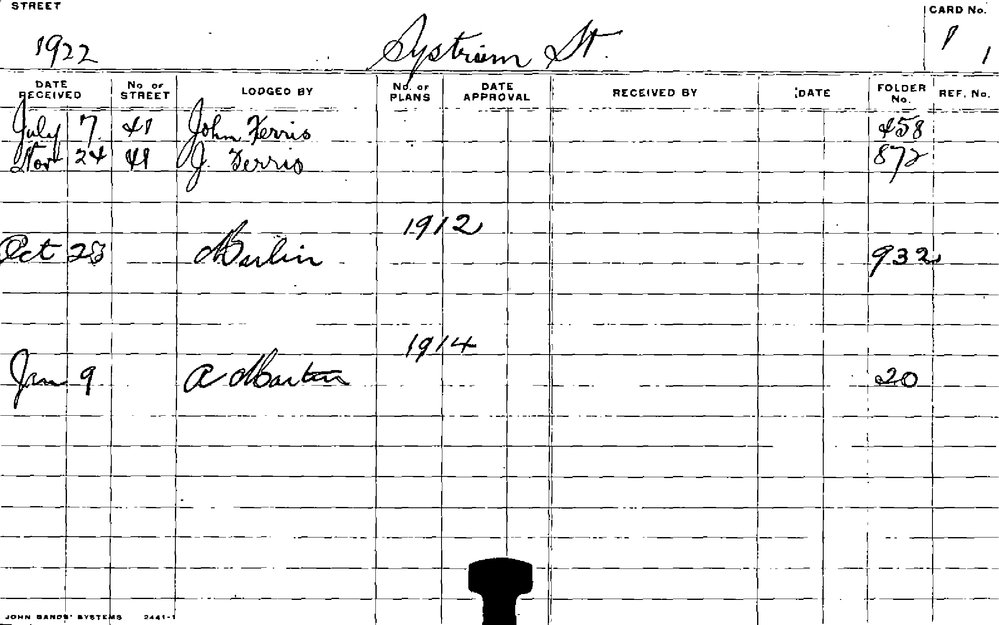 STREET
CARD No.
1922 St. 1
DATE RECEIVED No of STREET LODGED BY No. of PLANS DATE APPROVAL RECEIVED BY DATE FOLDER No. REF. No.
July 7 41 John Ferris 458
Nov 24 41 J. Ferris 872
1912
Oct 23 932
1914
Jan 9 A Martin 20
JOHN SANDS' SYSTEMS 2441-1